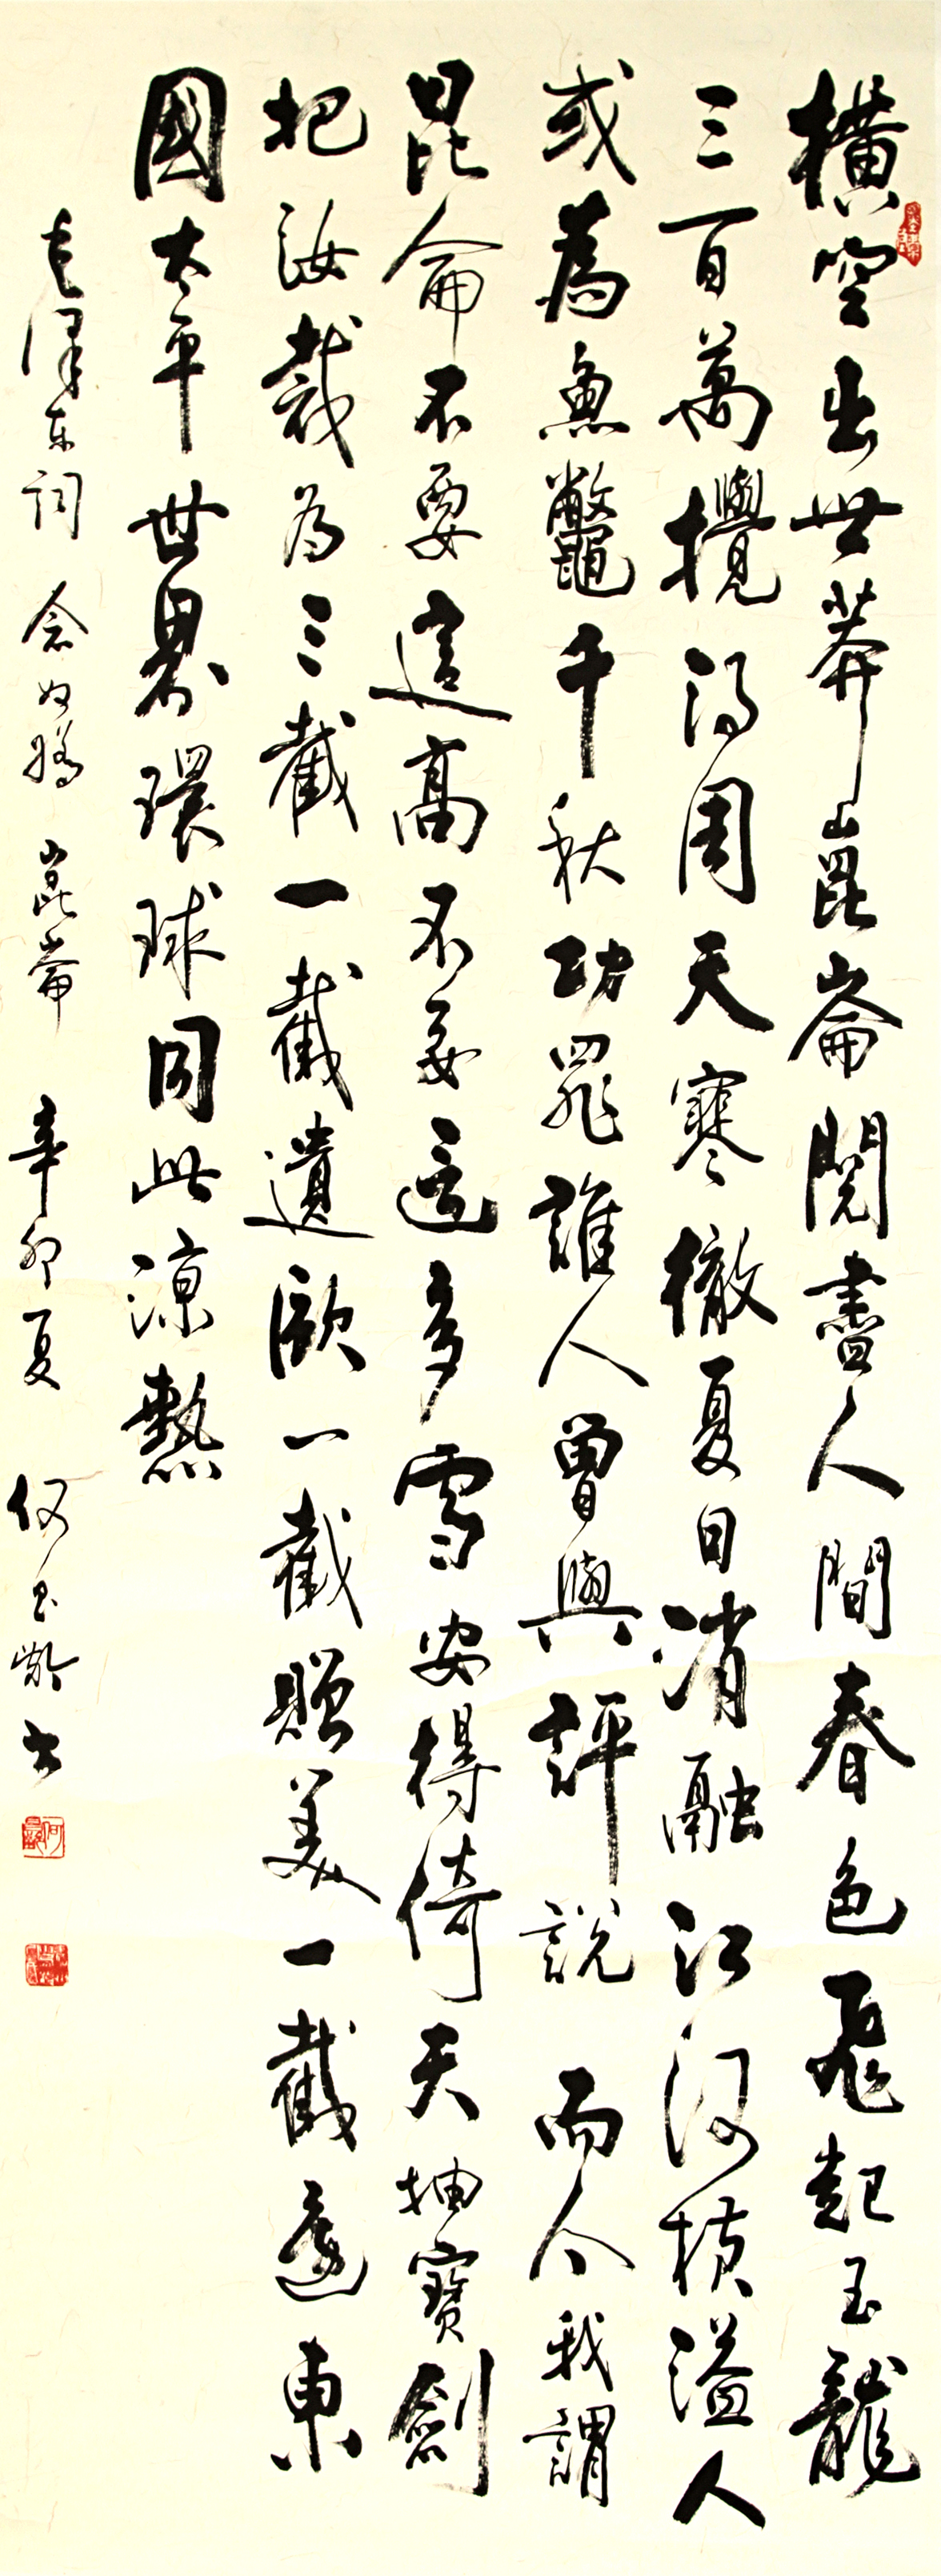 橫空出世莽崑崙閱盡人間春色飛起玉龍
三百萬攪得周天寒徹夏日消融江河橫溢人
或為魚鼈千秋功罪誰人曾與評說而今我謂
昆侖不要這高不要這多雪安得倚天抽寶劍
把汝裁为三截一截遺歐一截贈美一截還東
國太平世界環球同此涼熱
毛澤东詞 念奴嬌 崑崙 辛卯夏 何齡书